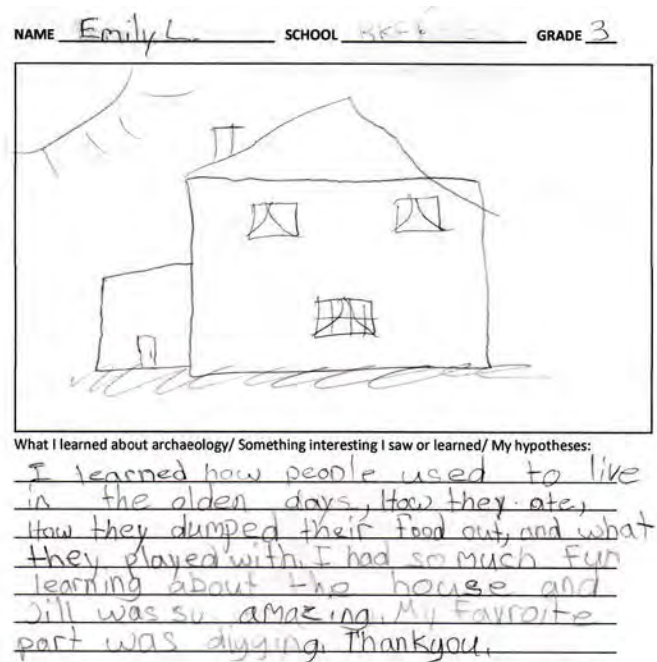 NAME Emily L. SCHOOL GRADE 3
What I learned about archaeology/ Something interesting I saw or learned/ My hypotheses:
I learned how people used to live
in the olden days, How they ate,
How they dumped their food out, and what
they played with. I had so much fun
learning about the house and
Jill was so amazing. My favroite
part was digging. Thankyou.